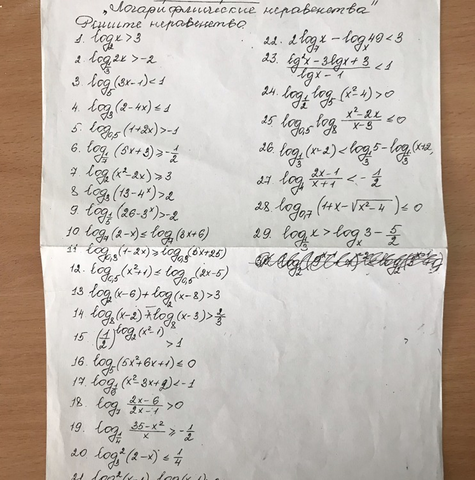 „Логарифмические неравенства"
Решите неравенства
1. log₂x > 3
2 log_{1/3}2x > -2
3. log₅(3x-1) < 1
4. log₃(2-4x) ≤ 1
5. log₀,₅(1+2x) > -1
6. log_{1/7}(5x+3) ≥ -1/2
7 log₂(x²-2x) ≥ 3
8 log₃(13-4ˣ) > 2
9 log_{1/5}(26-3ˣ) > -2
10 log₇(2-x) ≤ log₇(3x+6)
11 log₀,₃(1-2x) ≥ log₀,₃(5x+25)
12. log₀,₅(x²+1) ≤ log₀,₅(2x-5)
13 log₂(x-6) + log₂(x-8) > 3
14 log₈(x-2) log₈(x-3) > 2/3
15 (1/2)^{log₂(x²-1)} > 1
16. log₅(5x²+6x+1) ≤ 0
17. log_{1/6}(x²-3x+2) < -1
18. log₇ (2x-6)/(2x-1) > 0
19. log_{1/4} (35-x²)/x ≥ -1/2
20 log₃²(2-x) ≤ 1/4
22. 2log₇x - logₓ49 < 3
23. (lg²x - 3lgx + 3)/(lgx - 1) < 1
24. log_{1/2} log₅(x²-4) > 0
25 log₀,₅ log₈ (x²-2x)/(x-3) ≤ 0
26. log_{1/3}(x-2) < log_{1/3}5 - log_{1/3}(x+2,
27. log₄ (2x-1)/(x+1) < -1/2
28. log₀,₇(1+x-√(x²-4)) ≤ 0
29. log_{1/3}x > logₓ3 - 5/2